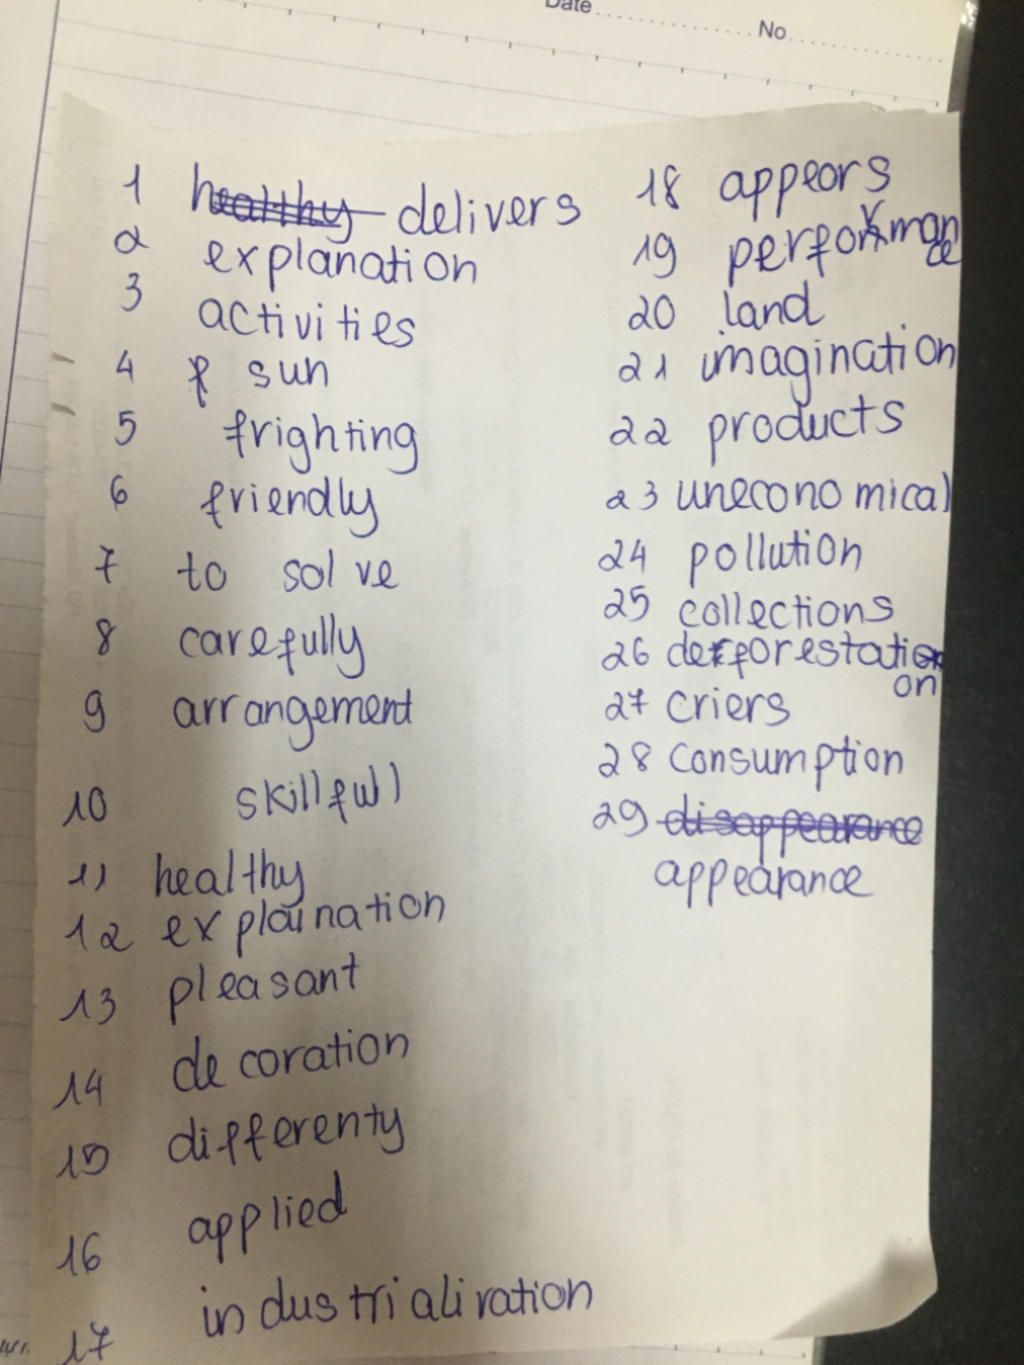 Date
No
1 healthy delivers
2 explanation
3 activities
4 sun
5 frighting
6 friendly
7 to solve
8 carefully
9 arrangement
10 skillful
11 healthy
12 explaination
13 pleasant
14 decoration
15 differenty
16 applied
17 industrialiration
18 appears
19 performan
ce
20 land
21 imagination
22 products
23 uneconomical
24 pollution
25 collections
26 deforestati
on
27 criers
28 consumption
29 disappearance
appearance